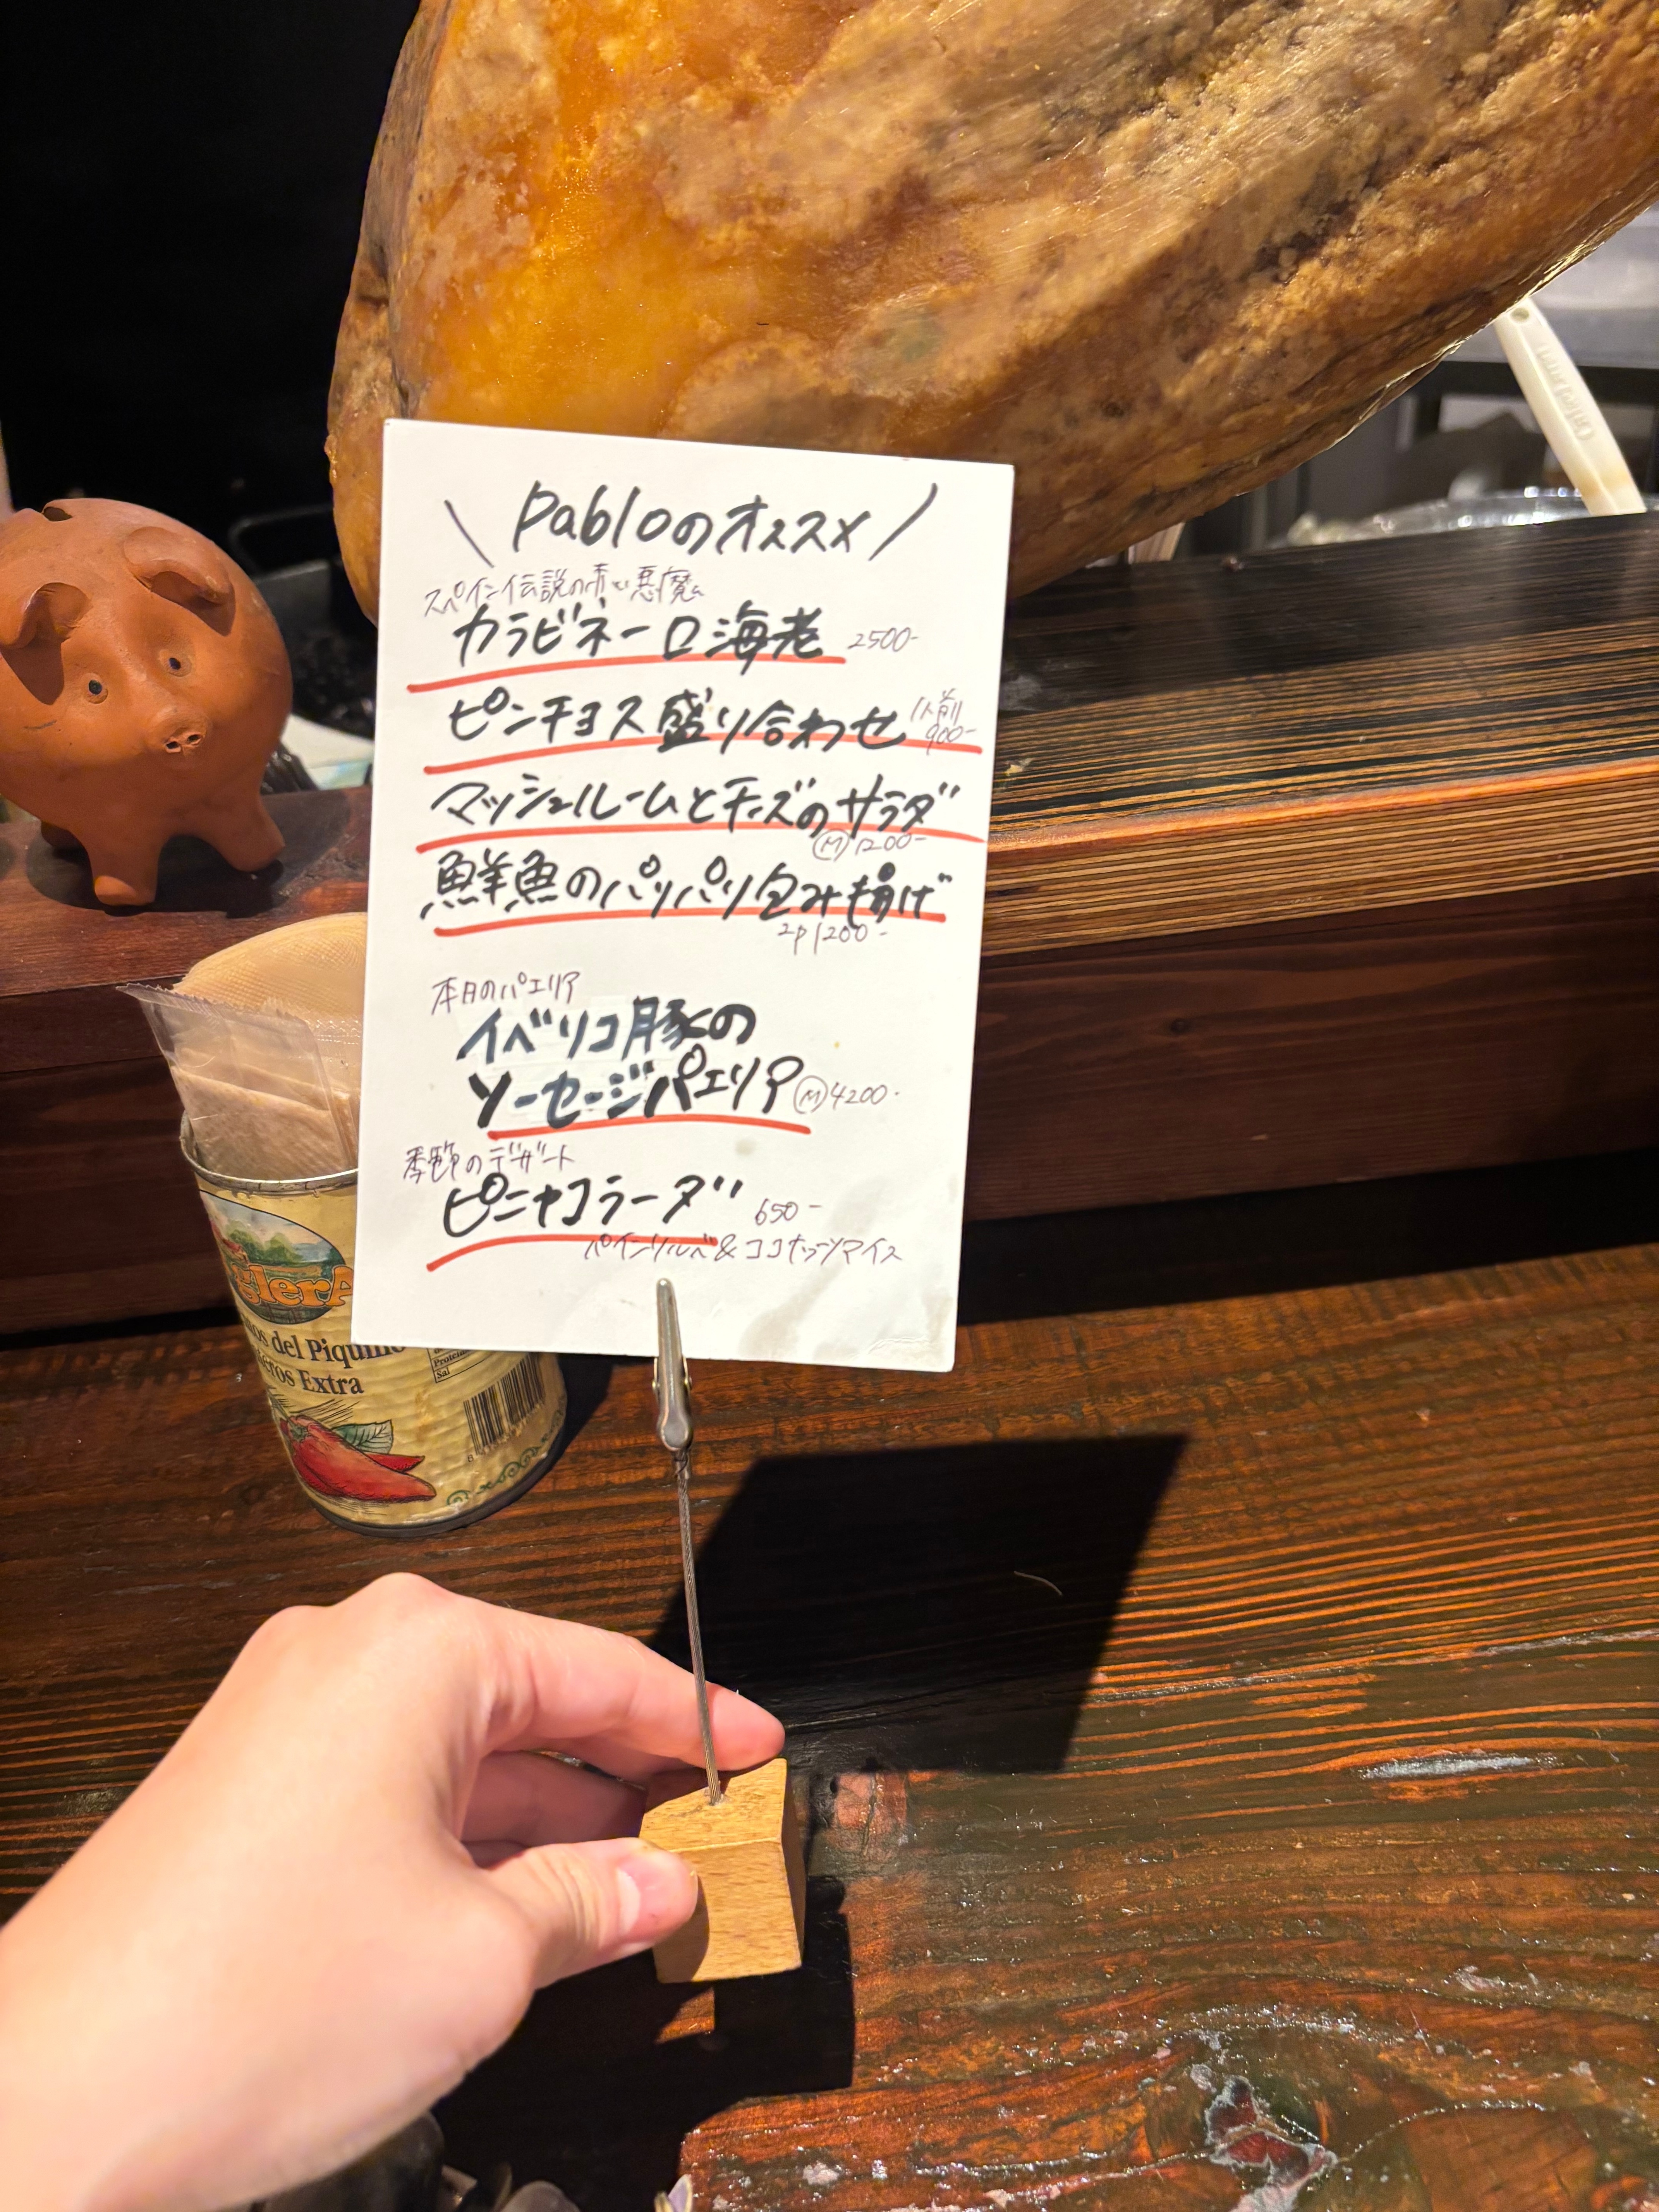 \ Pabloのオススメ /
スペイン伝説の赤い悪魔
カラビネーロ海老 2500-
ピンチョス盛り合わせ 1人前 900-
マッシュルームとチーズのサラダ
Ⓜ1200-
鮮魚のパリパリ包み揚げ
2p 1200-
本日のパエリア
イベリコ豚の
ソーセージパエリア Ⓜ4200-
季節のデザート
ピニャコラーダ 650-
パインソルベ&ココナッツアイス
del Piquillo
Extra
Sal